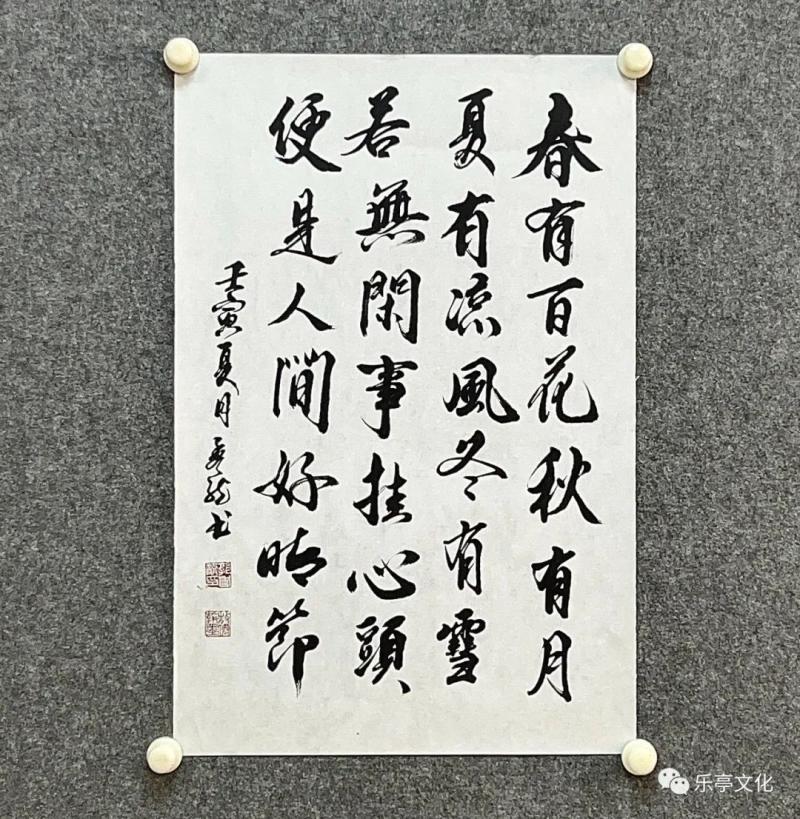 春有百花秋有月
夏有凉風冬有雪
若無閑事挂心頭
便是人間好時節
壬寅夏月
书
乐亭文化